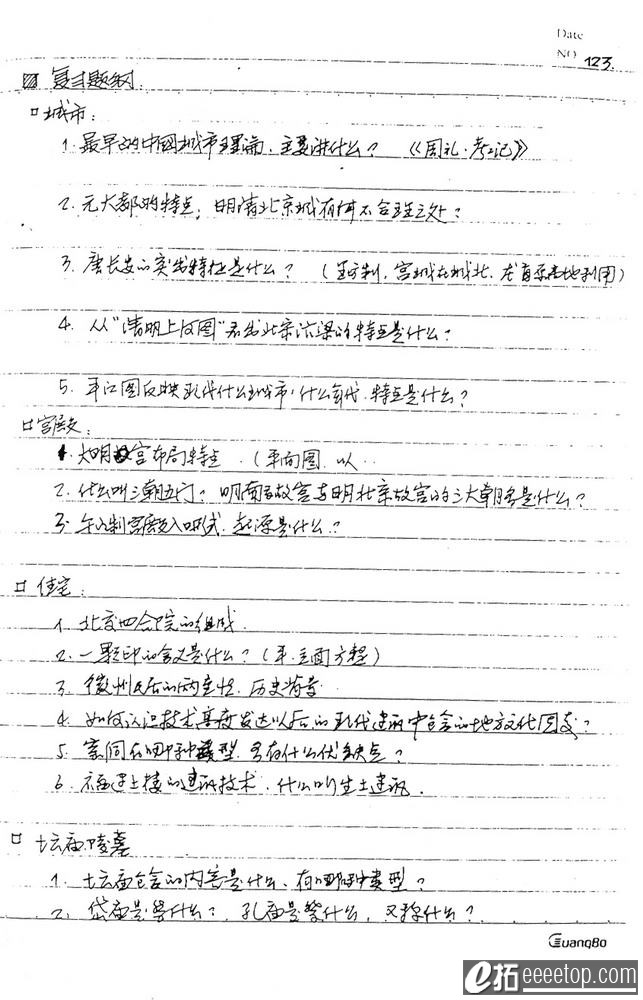 Date
NO 123.
复习题纲.
城市:
1. 最早的中国城市理论, 主要讲什么? 《周礼·考工记》
2. 元大都的特点, 明清北京城有何不合理之处?
3. 唐长安的突出特征是什么? (里坊制, 宫城在城北, 龙首原高地利用)
4. 从"清明上河图"看出北宋汴梁的特点是什么?
5. 平江图反映现代什么城市, 什么年代, 特点是什么?
宫殿:
1. 大明宫布局特点. (平面图, 以..
2. 什么叫三朝五门? 明南京故宫与明北京故宫的三大朝名是什么?
3. 午门制宫殿入口式, 起源是什么?
住宅:
1. 北京四合院的组成.
2. 一颗印的含义是什么? (平、立面方整)
3. 徽州民居的两重性, 历史背景
4. 如何认识技术高度发达以后的现代建筑中包含的地方文化因素?
5. 窑洞有哪种类型, 各有什么优缺点?
6. 福建土楼的建筑技术, 什么叫生土建筑.
坛庙陵墓
1. 坛庙包含的内容是什么, 有哪种类型?
2. 岱庙是祭什么?, 孔庙是祭什么, 又称什么?
GuangBo
e拓 eeeetop.com